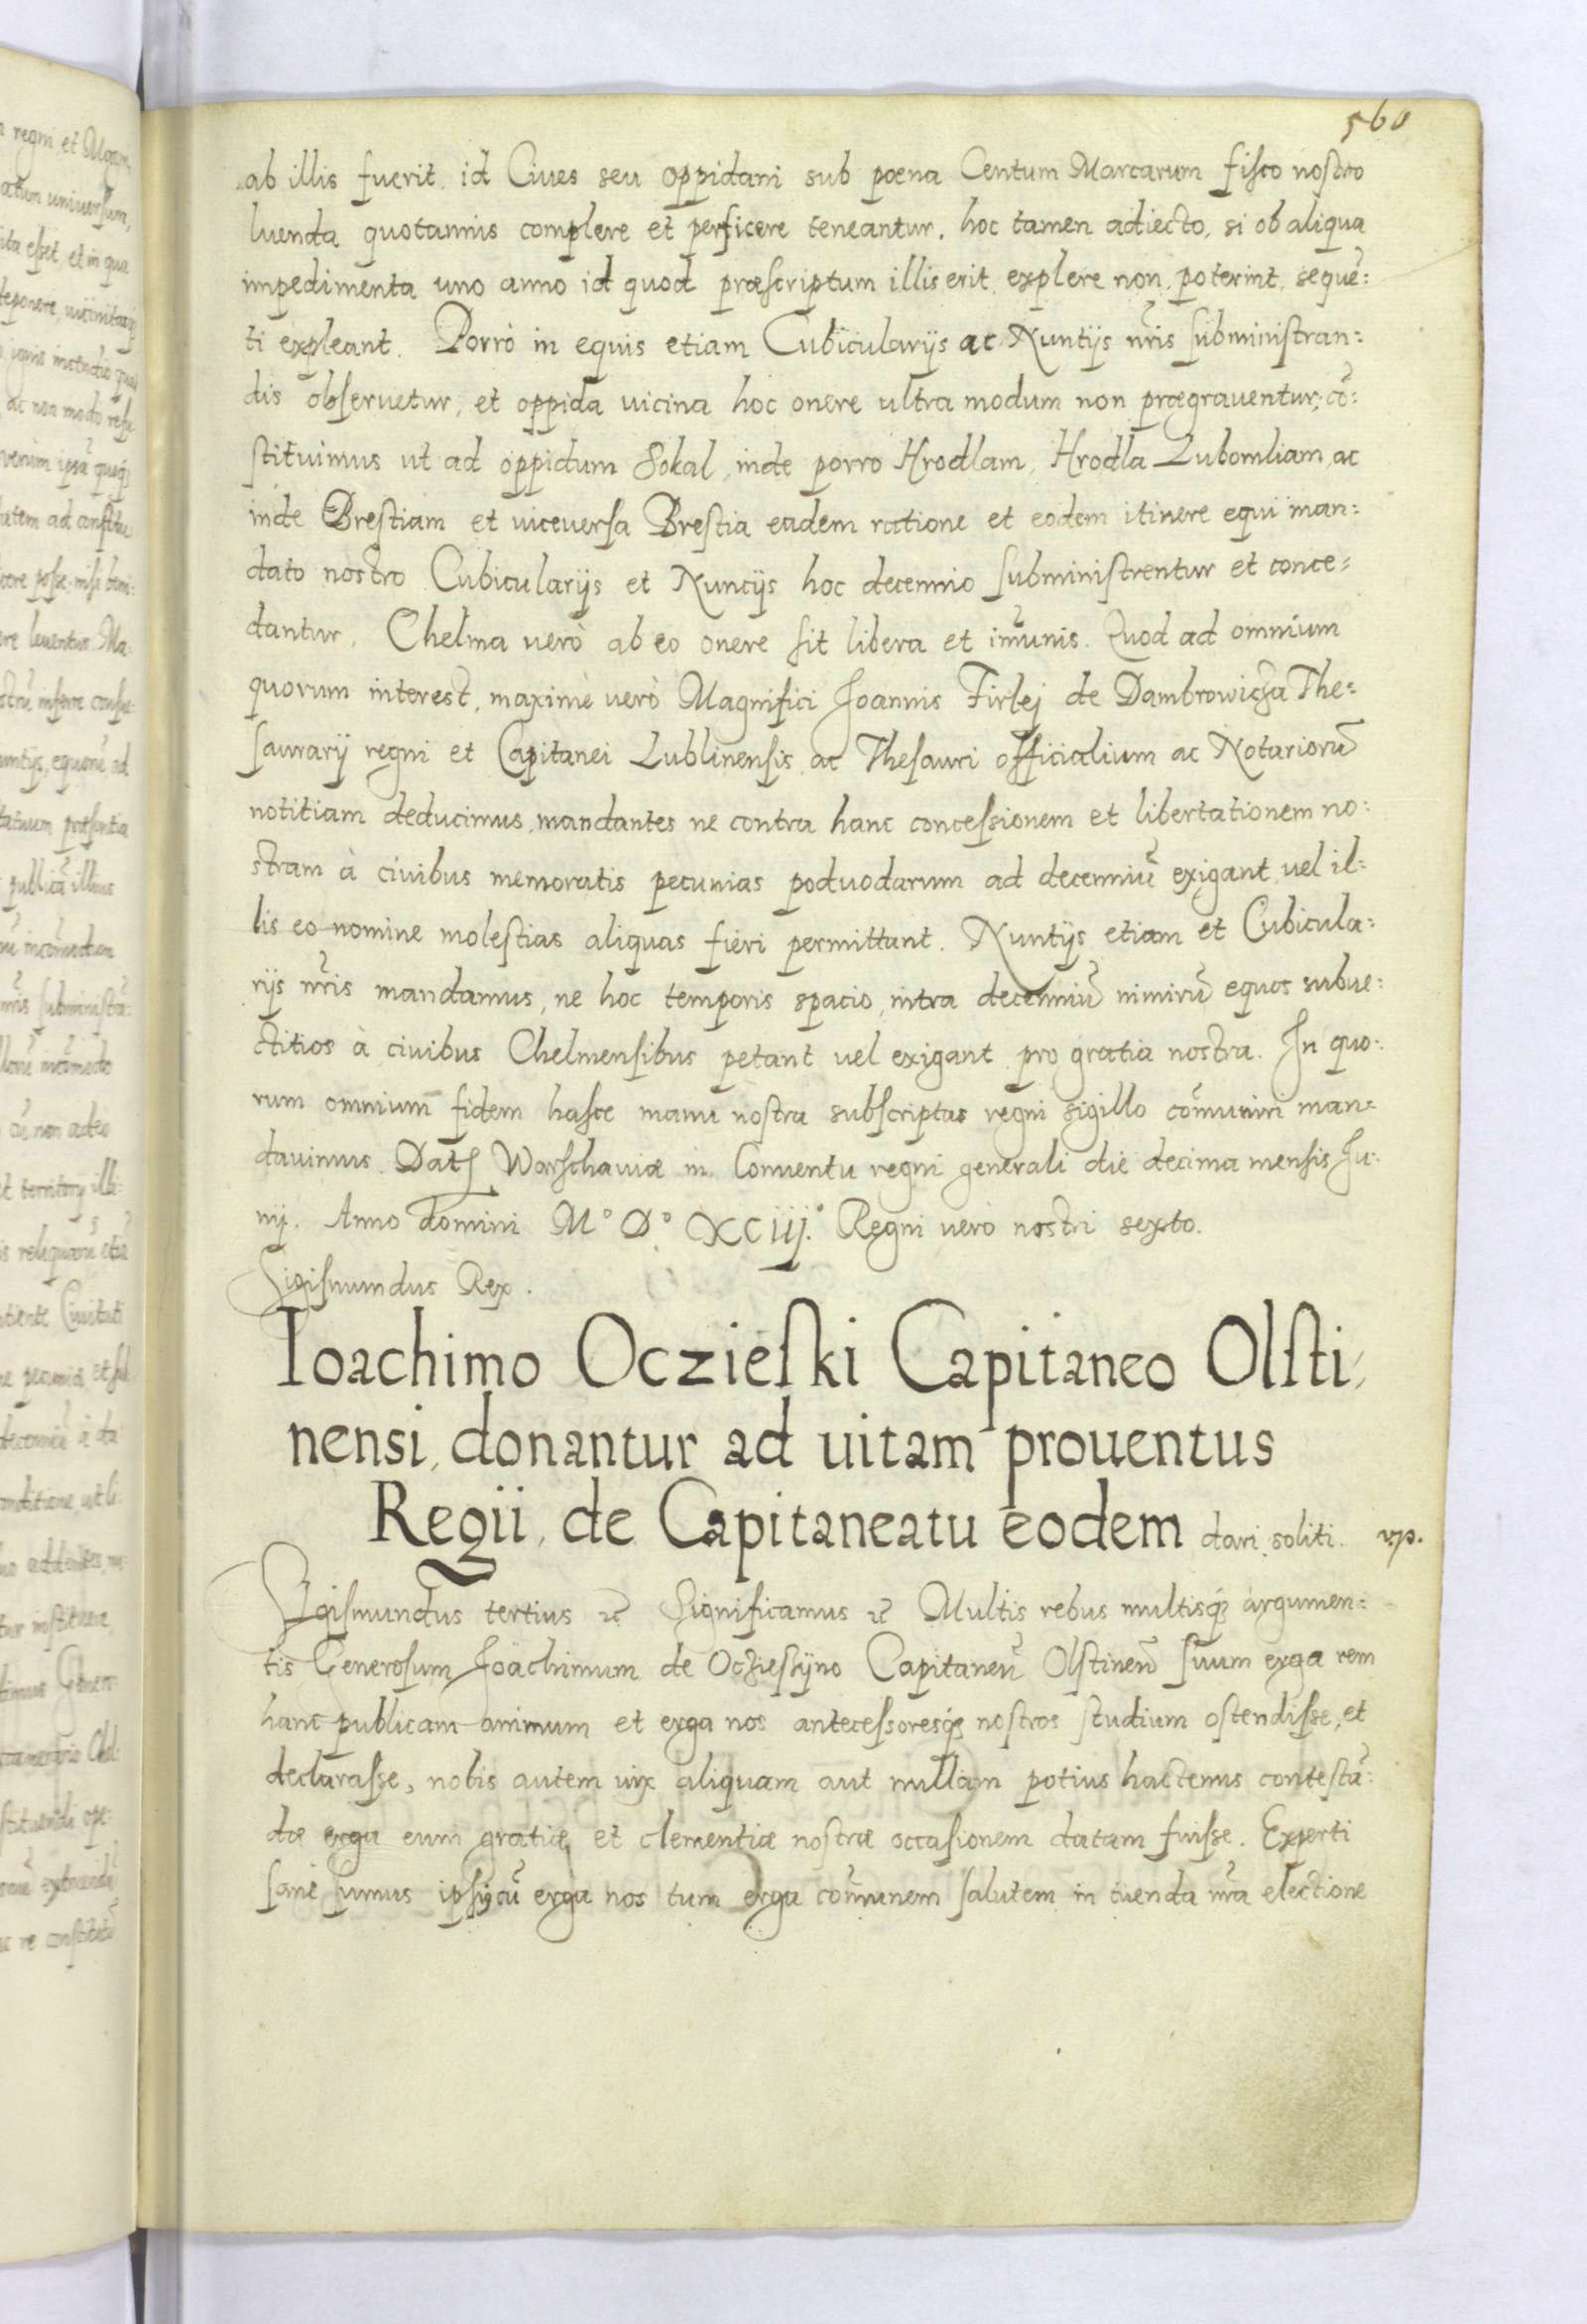 560
ab illis fuerit, id Ciues seu oppidani sub pœna Centum Marcarum fisco nostro
luenda quotannis complere et perficere teneantur, hoc tamen adiecto, si ob aliqua
impedimenta uno anno id quod præscriptum illis erit explere non poterint, sequẽ:
ti expleant. Porrò in equis etiam Cubicularijs ac Nuntijs nr̃is subministran:
dis obseruetur, et oppida uicina hoc onere ultra modum non prægraventur, cõ:
stituimus ut ad oppidum Sokal, inde porro Hrodlam, Hrodla Lubomliam, ac
inde Brestiam et viceuersa Brestia eadem ratione et eodem itinere equi man:
dato nostro Cubicularijs et Nuncijs hoc decennio subministrentur et conce:
dantur. Chelma uerò ab eo onere sit libera et im̃unis. Quod ad omnium
quorum interest, maximè uerò Magnifici Joannis Firlej de Dambrowicza The:
saurarij regni et Capitanei Lublinensis ac Thesauri officialium ac Notariorũ
notitiam deducimus, mandantes ne contra hanc concessionem et libertationem no:
stram à ciuibus memoratis pecunias poduodarum ad decenniũ exigant, vel il:
lis eo nomine molestias aliquas fieri permittant. Nuntijs etiam et Cubicula:
rijs nr̃is mandamus, ne hoc temporis spacio, intra decenniũ nimirũ equos subue:
ctitios à ciuibus Chelmensibus petant vel exigant pro gratia nostra. In quo:
rum omnium fidem hasce manu nostra subscriptas regni sigillo com̃uniri man:
davimus. Datῃ Warschauiæ in Conuentu regni generali die decima mensis Ju:
nij. Anno domini M° D° XCiij.° Regni uerò nostri sexto.
Sigismundus Rex.
Ioachimo Oczieski Capitaneo Olsti,
nensi, donantur ad uitam prouentus
Regii, de Capitaneatu eodem dari soliti.
Sigismundus tertius ꝛc̃ Significamus ꝛc̃ Multis rebus multisq́ꝫ argumen:
tis Generosum Joachimum de Oczieszyno Capitaneũ Olstineñ suum erga rem
hanc publicam animum et erga nos antecessoresq́ꝫ nostros studium ostendisse, et
declarasse, nobis autem uix aliquam aut nullam potius hactenus contestã:
dæ erga eum gratiæ et clementiæ nostræ occasionem datam fuisse. Experti
sanè sumus ipsi cũ erga nos tum erga com̃unem salutem in tuenda nr̃a electione